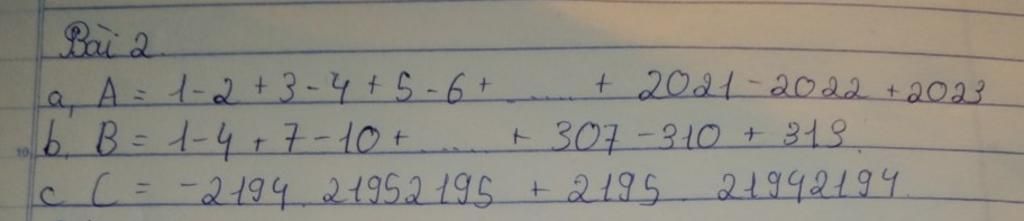 Bài 2
a, A = 1-2+3-4+5-6+ ..... + 2021-2022+2023
b, B = 1-4+7-10+ ..... + 307-310+313
c C = -2194. 21952195 + 2195. 21942194